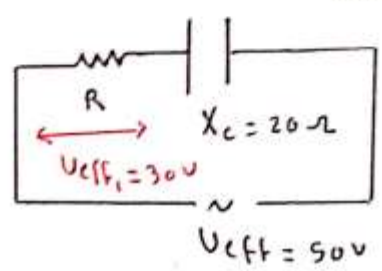 R
X_c = 20 Ω
U_eff₁ = 30 V
~
U_eff = 50 V